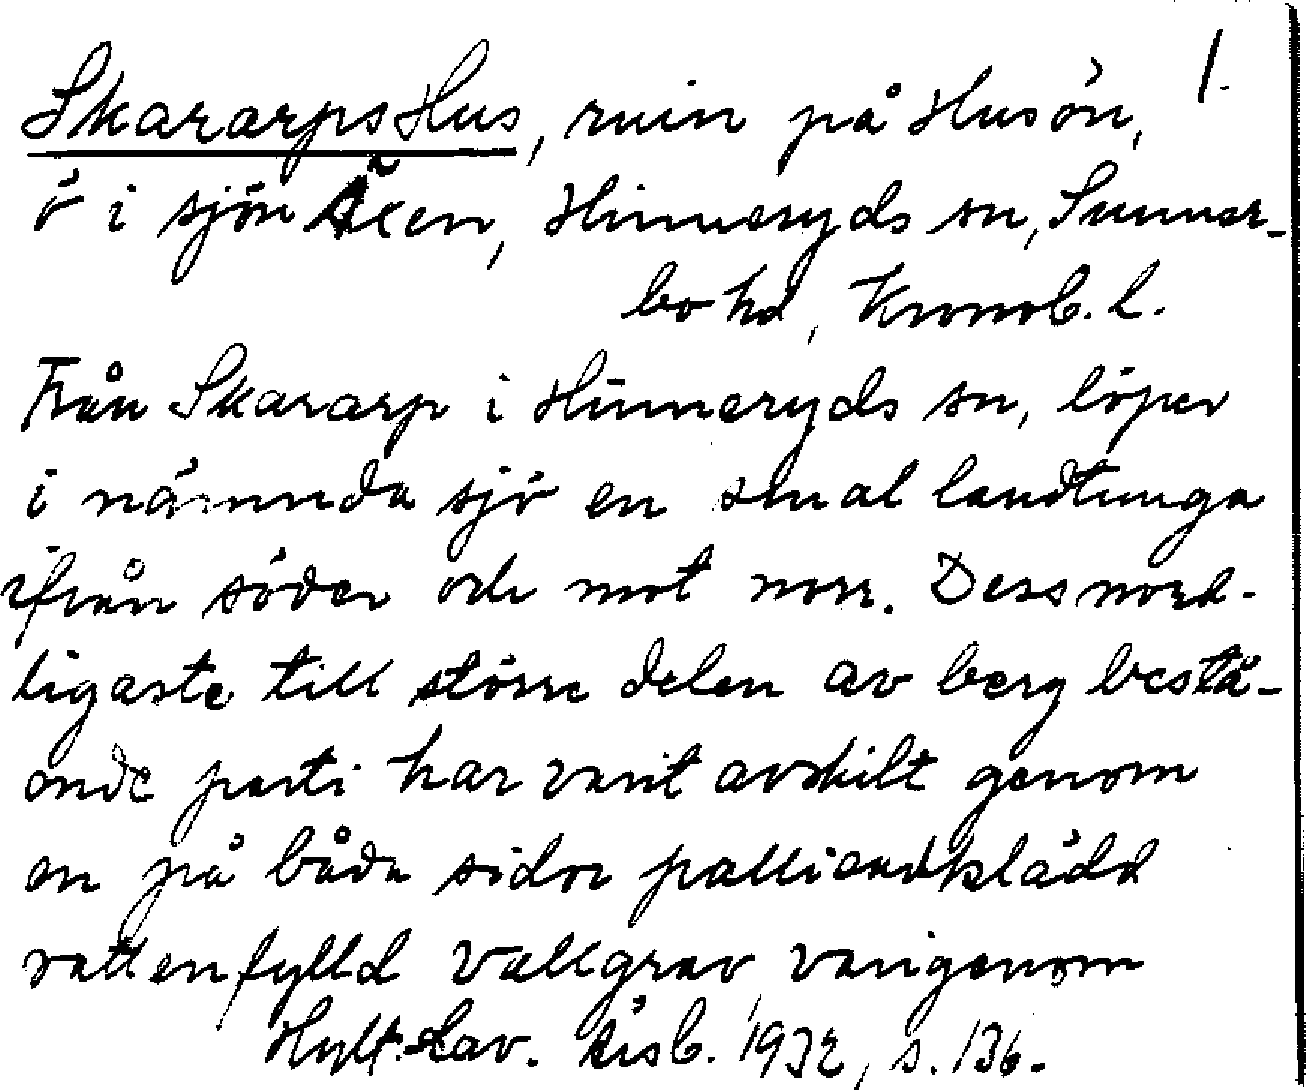 Skararps Hus, ruin på Husön, 1.
ö i sjön Äcen, Hinneryds sn, Sunner-
bo hd, Kronob. l.
Från Skararp i Hinneryds sn, löper
i nämnda sjö en smal landtunga
ifrån söder och mot norr. Dess nord-
ligaste till större delen av berg bestå-
ende parti har varit avskilt genom
en på båda sidor pallisadklädd
vattenfylld vallgrav, varigenom
Hylt.-Cav. årsb. 1932, s. 136.